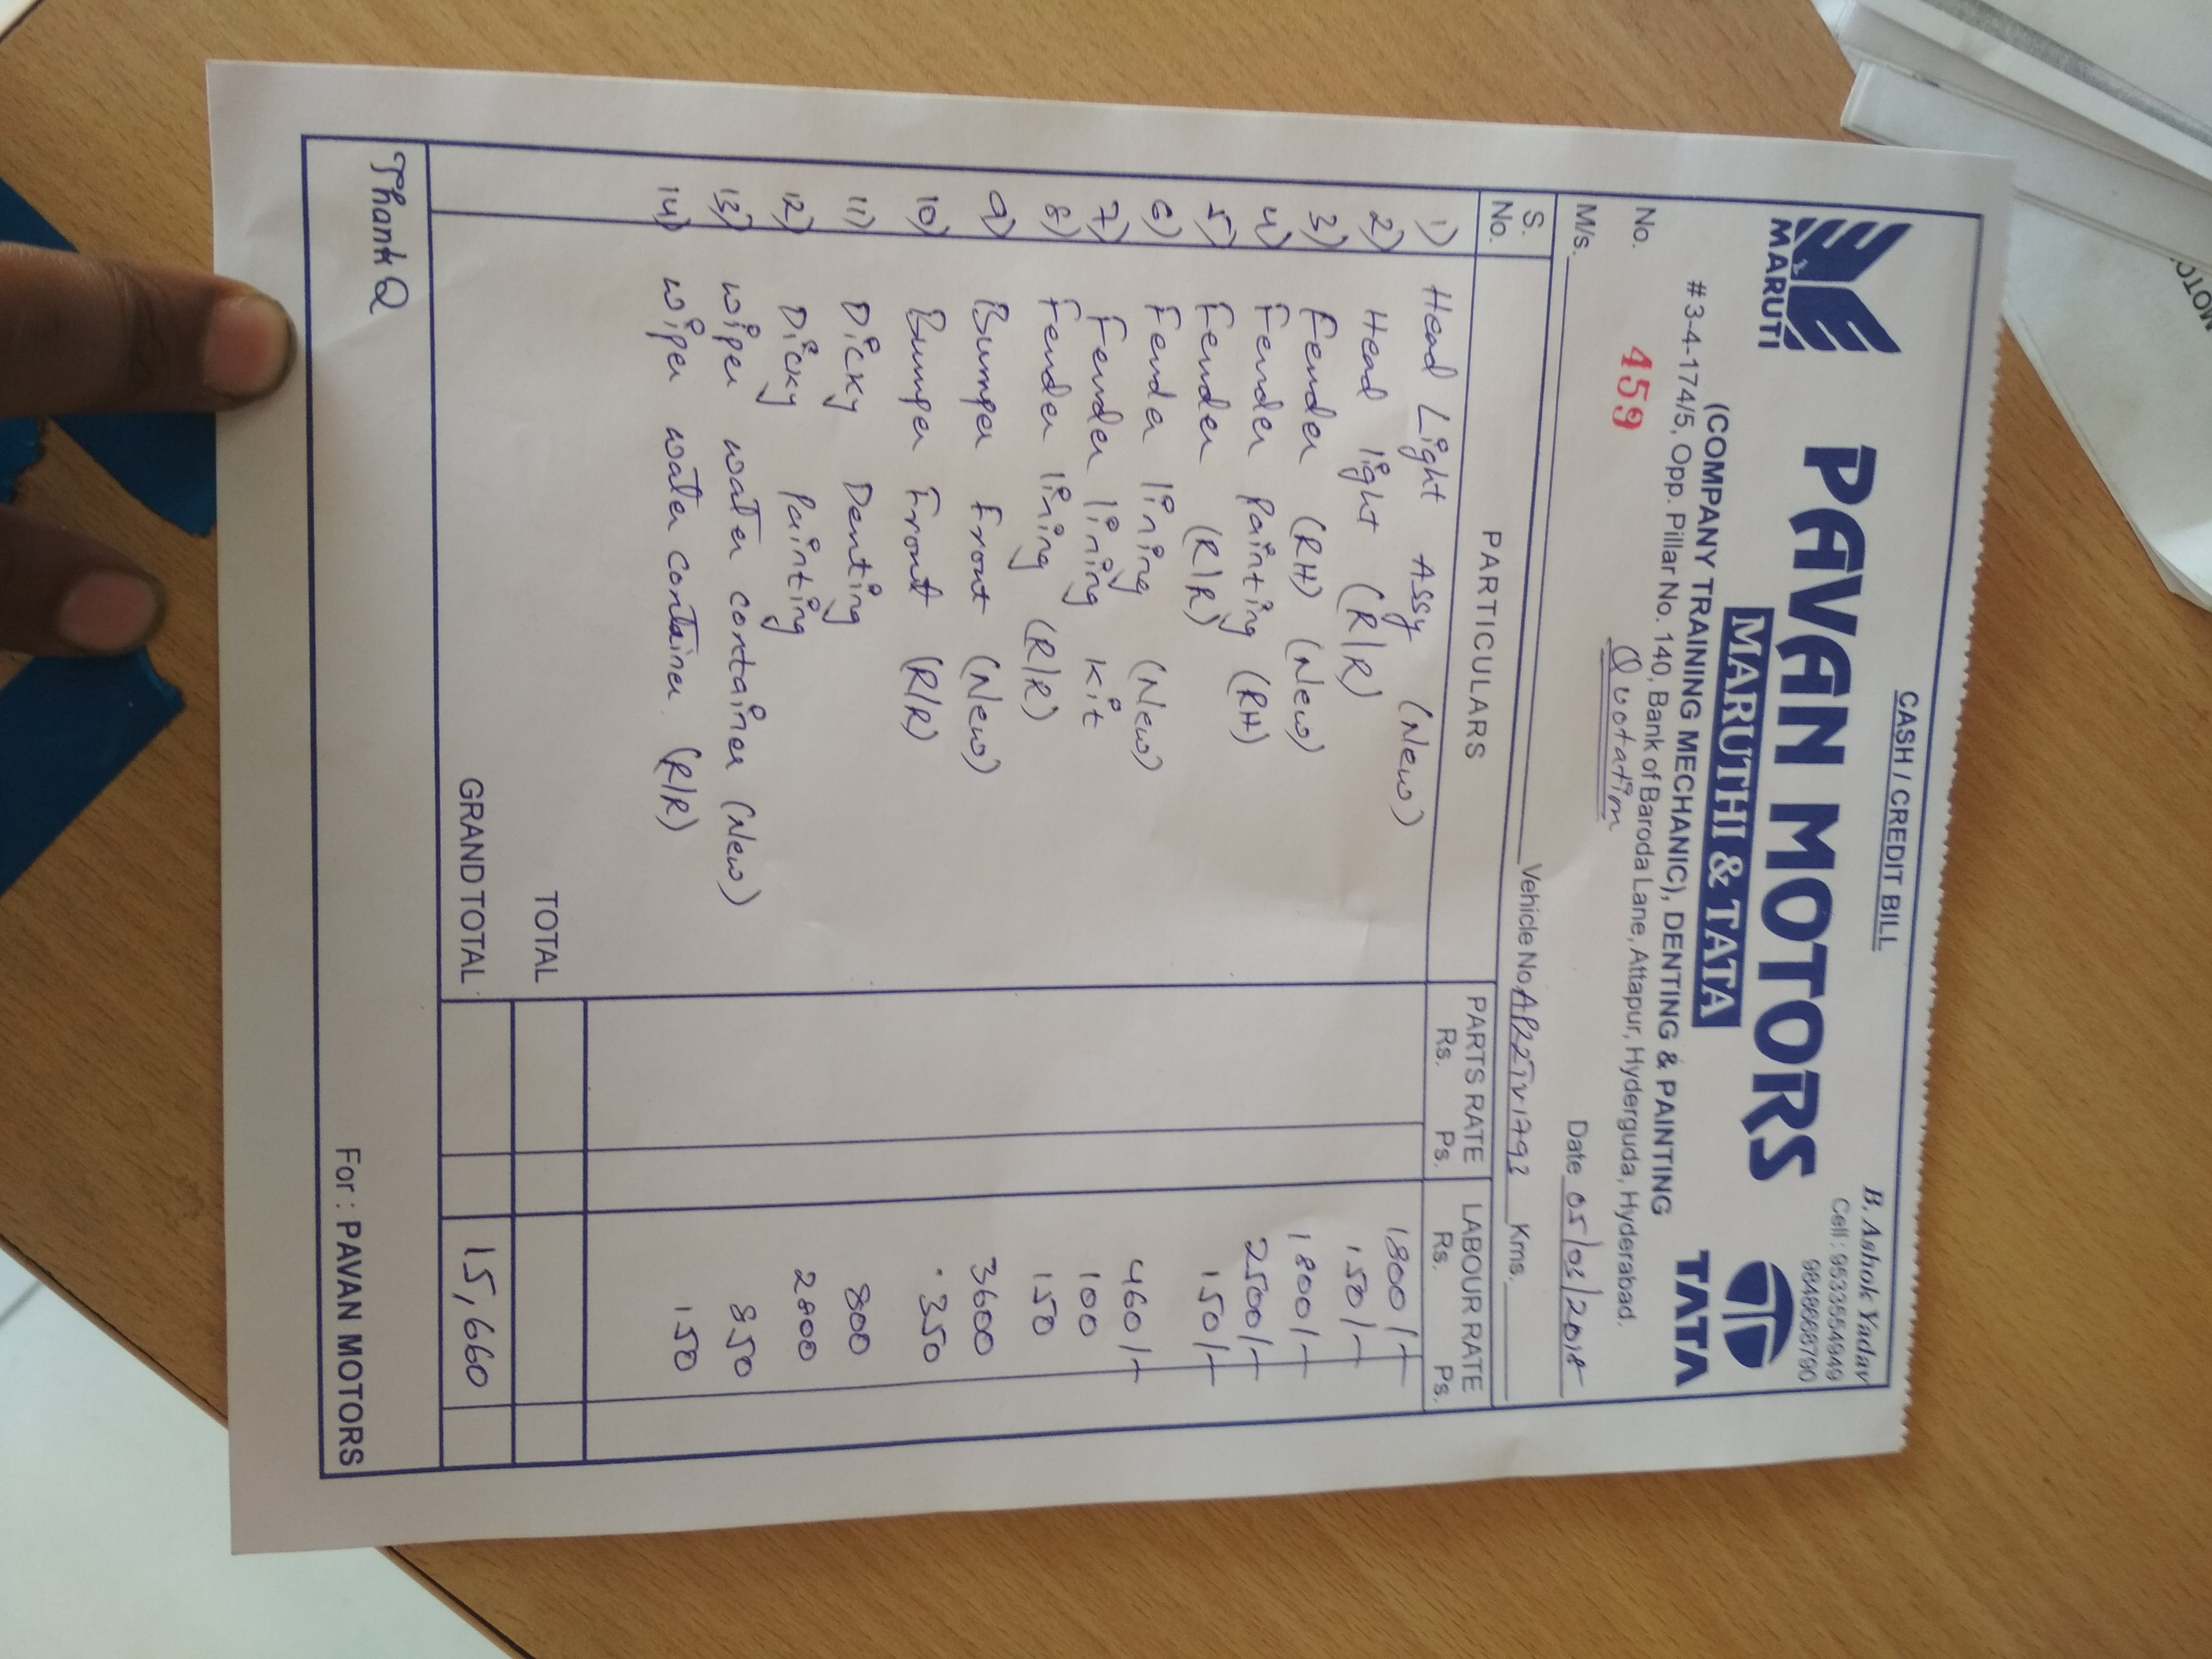 CASH / CREDIT BILL
B. Ashok Yadav
Cell : 9533554949
9848668790
MARUTI
PAVAN MOTORS
MARUTHI & TATA
TATA
(COMPANY TRAINING MECHANIC), DENTING & PAINTING
# 3-4-174/5, Opp. Pillar No. 140, Bank of Baroda Lane, Attapur, Hyderguda, Hyderabad.
No. 459 Quotation Date 05/01/2018
M/s. Vehicle No. Kms.
S. No. PARTICULARS PARTS RATE Rs. Ps. LABOUR RATE Rs. Ps.
1) Head Light Assy (New) 1800/-
2) Head light (R/R) 150/-
3) Fender (RH) (New) 1800/-
4) Fender Painting (RH) 2500/-
5) Fender (R/R) 150/-
6) Fender lining (New) 460/-
7) Fender lining kit 100
8) Fender lining (R/R) 150
9) Bumper Front (New) 3600
10) Bumper Front (R/R) 350
11) Dicky Denting 800
12) Dicky Painting 2800
13) wiper water container (New) 850
14) wiper water container (R/R) 150
TOTAL
GRAND TOTAL 15,660
Thank Q
For : PAVAN MOTORS